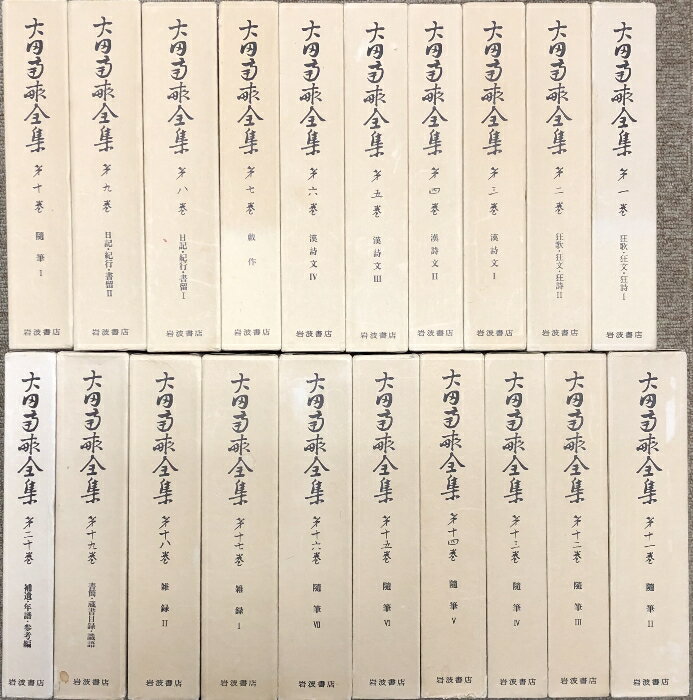 大田南畝全集 第一巻 狂歌・狂文・狂詩Ⅰ 岩波書店
大田南畝全集 第二巻 狂歌・狂文・狂詩Ⅱ 岩波書店
大田南畝全集 第三巻 漢詩文Ⅰ 岩波書店
大田南畝全集 第四巻 漢詩文Ⅱ 岩波書店
大田南畝全集 第五巻 漢詩文Ⅲ 岩波書店
大田南畝全集 第六巻 漢詩文Ⅳ 岩波書店
大田南畝全集 第七巻 戯作 岩波書店
大田南畝全集 第八巻 日記・紀行・書留Ⅰ 岩波書店
大田南畝全集 第九巻 日記・紀行・書留Ⅱ 岩波書店
大田南畝全集 第十巻 随筆Ⅰ 岩波書店
大田南畝全集 第十一巻 随筆Ⅱ 岩波書店
大田南畝全集 第十二巻 随筆Ⅲ 岩波書店
大田南畝全集 第十三巻 随筆Ⅳ 岩波書店
大田南畝全集 第十四巻 随筆Ⅴ 岩波書店
大田南畝全集 第十五巻 随筆Ⅵ 岩波書店
大田南畝全集 第十六巻 随筆Ⅶ 岩波書店
大田南畝全集 第十七巻 雑録Ⅰ 岩波書店
大田南畝全集 第十八巻 雑録Ⅱ 岩波書店
大田南畝全集 第十九巻 書簡・蔵書目録・識語 岩波書店
大田南畝全集 第二十巻 補遺・年譜・参考編 岩波書店